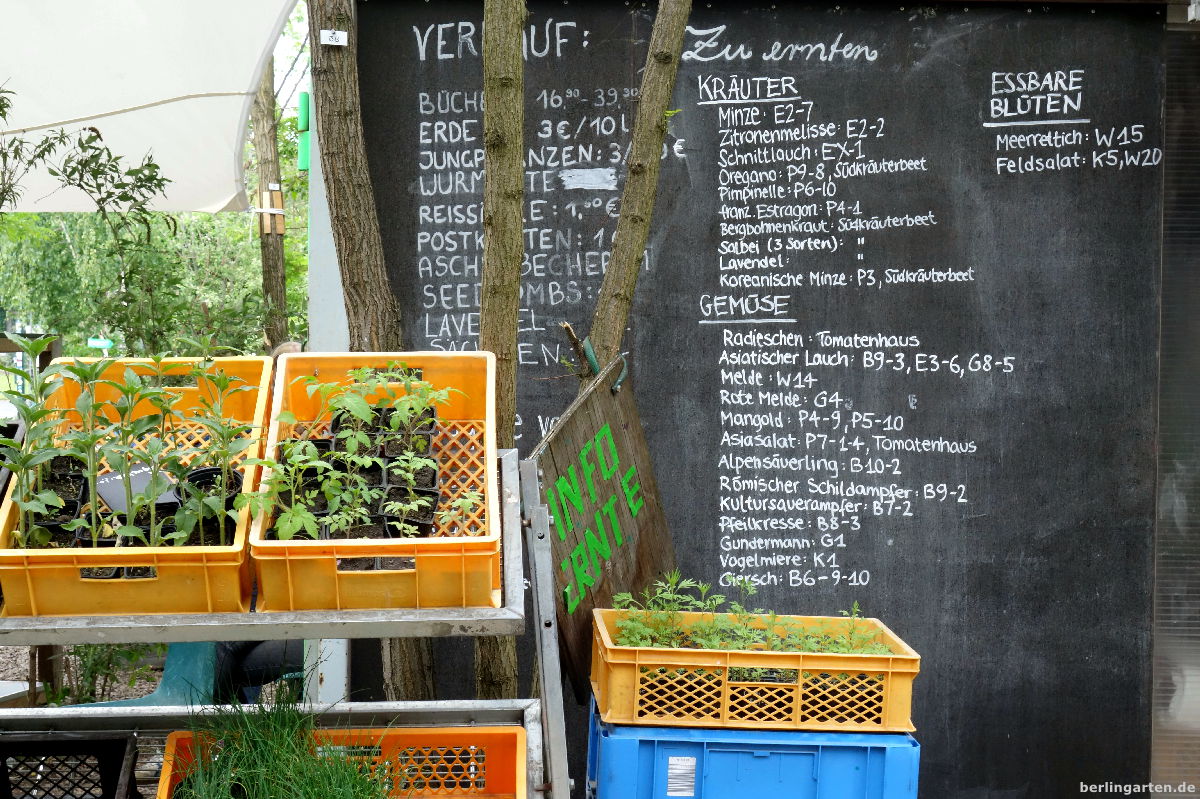 VERKAUF:
16,90 - 39,90
ERDE 3€/10l
JUNGPFLANZEN: 3/
REISS : 1,00€
POSTKARTEN: 1
ASCHENBECHER
SEEDBOMBS:
LAVENDEL
Zu ernten
KRÄUTER
Minze: E2-7
Zitronenmelisse: E2-2
Schnittlauch: EX-1
Oregano: P9-8, Südkräuterbeet
Pimpinelle: P6-10
franz. Estragon: P4-1
Bergbohnenkraut: Südkräuterbeet
Salbei (3 Sorten): "
Lavendel: "
Koreanische Minze: P3, Südkräuterbeet
GEMÜSE
Radieschen: Tomatenhaus
Asiatischer Lauch: B9-3, E3-6, G8-5
Melde: W14
Rote Melde: G4
Mangold: P4-9, P5-10
Asiasalat: P7-1-4, Tomatenhaus
Alpensäuerling: B10-2
Römischer Schildampfer: B9-2
Kultursauerampfer: B7-2
Pfeilkresse: B8-3
Gundermann: G1
Vogelmiere: K1
Giersch: B6-9-10
ESSBARE
BLÜTEN
Meerrettich: W15
Feldsalat: K5, W20
INFO
ERNTE
berlingarten.de